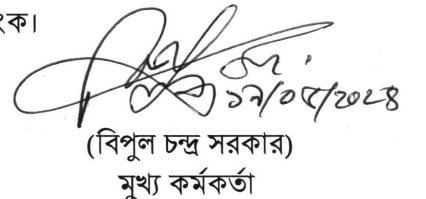 ংক।
১৯/০৫/২০২৪
(বিপুল চন্দ্র সরকার)
মুখ্য কর্মকর্তা